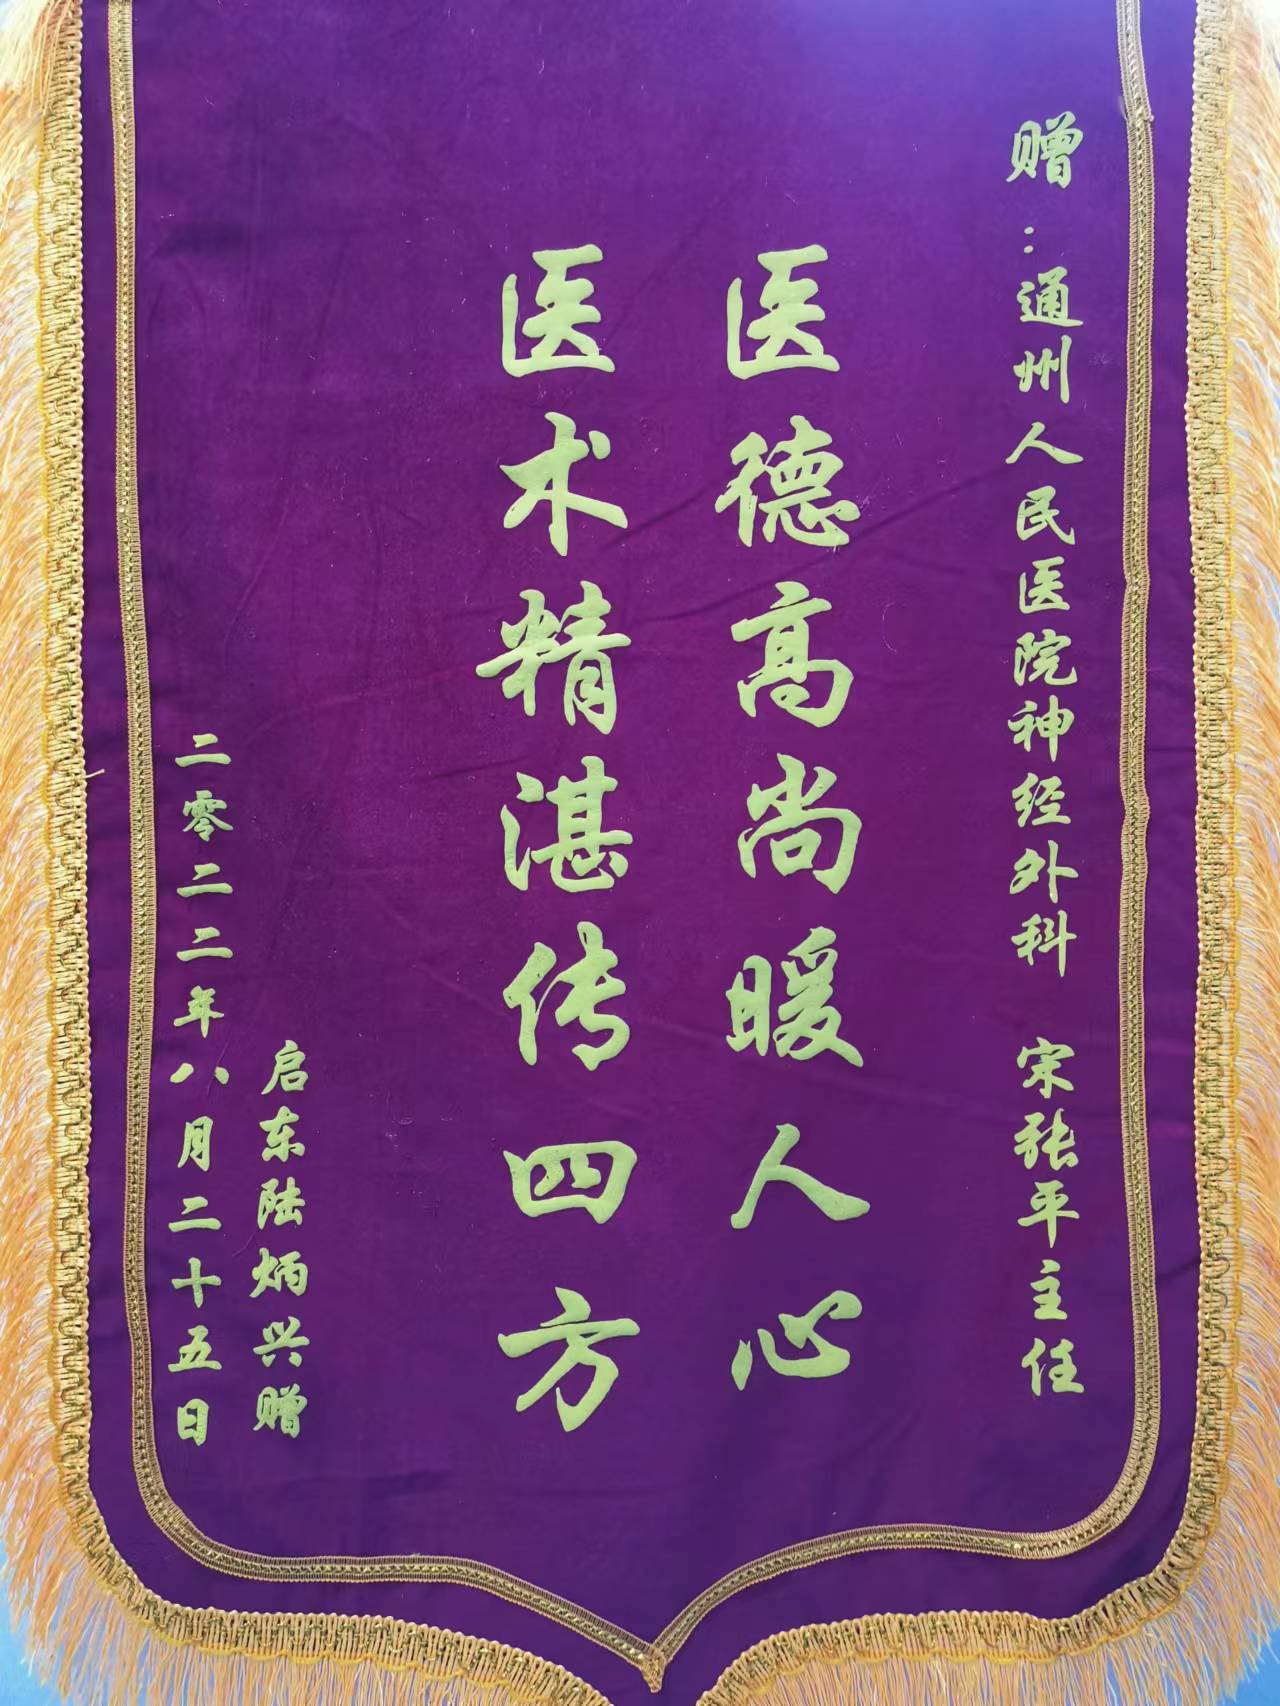 赠：通州人民医院神经外科 宋张平主任
医德高尚暖人心
医术精湛传四方
启东陆炳兴赠
二零二二年八月二十五日